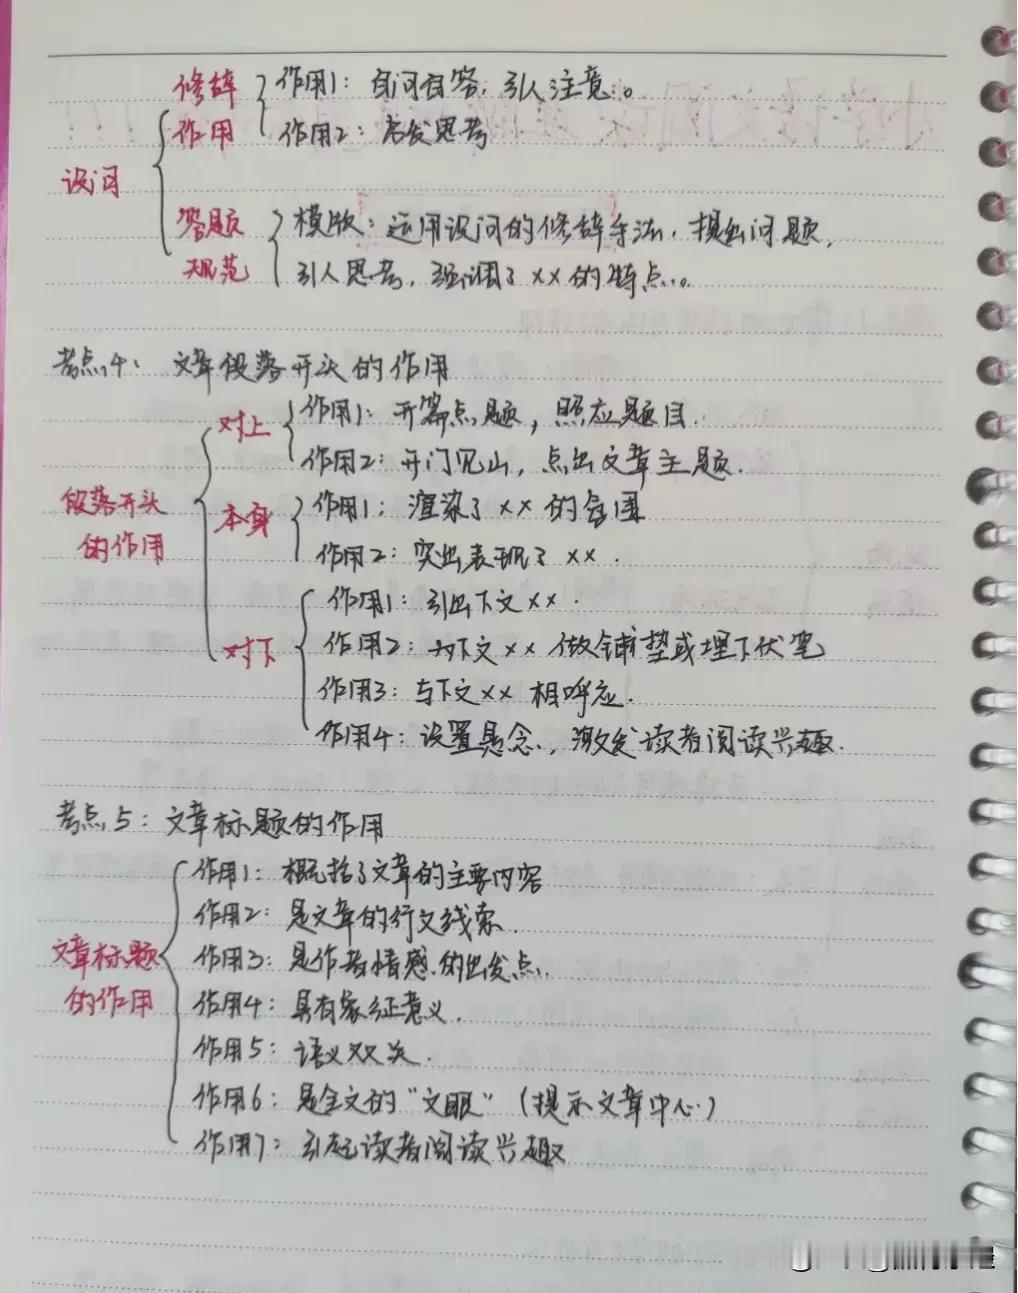 修辞 作用1：自问自答，引人注意。
作用 作用2：启发思考
设问
答题 模版：运用设问的修辞手法，提出问题，
规范 引人思考，强调了××的特点...。
考点4：文章段落开头的作用
对上 作用1：开篇点题，照应题目.
作用2：开门见山，点出文章主题.
段落开头 本身 作用1：渲染了××的氛围
的作用 作用2：突出表现了××.
作用1：引出下文××.
对下 作用2：为下文××做铺垫或埋下伏笔
作用3：与下文××相呼应.
作用4：设置悬念，激发读者阅读兴趣.
考点5：文章标题的作用
作用1：概括了文章的主要内容
作用2：是文章的行文线索.
文章标题 作用3：是作者情感的出发点.
的作用 作用4：具有象征意义.
作用5：语义双关.
作用6：是全文的“文眼”（提示文章中心）
作用7：引起读者阅读兴趣